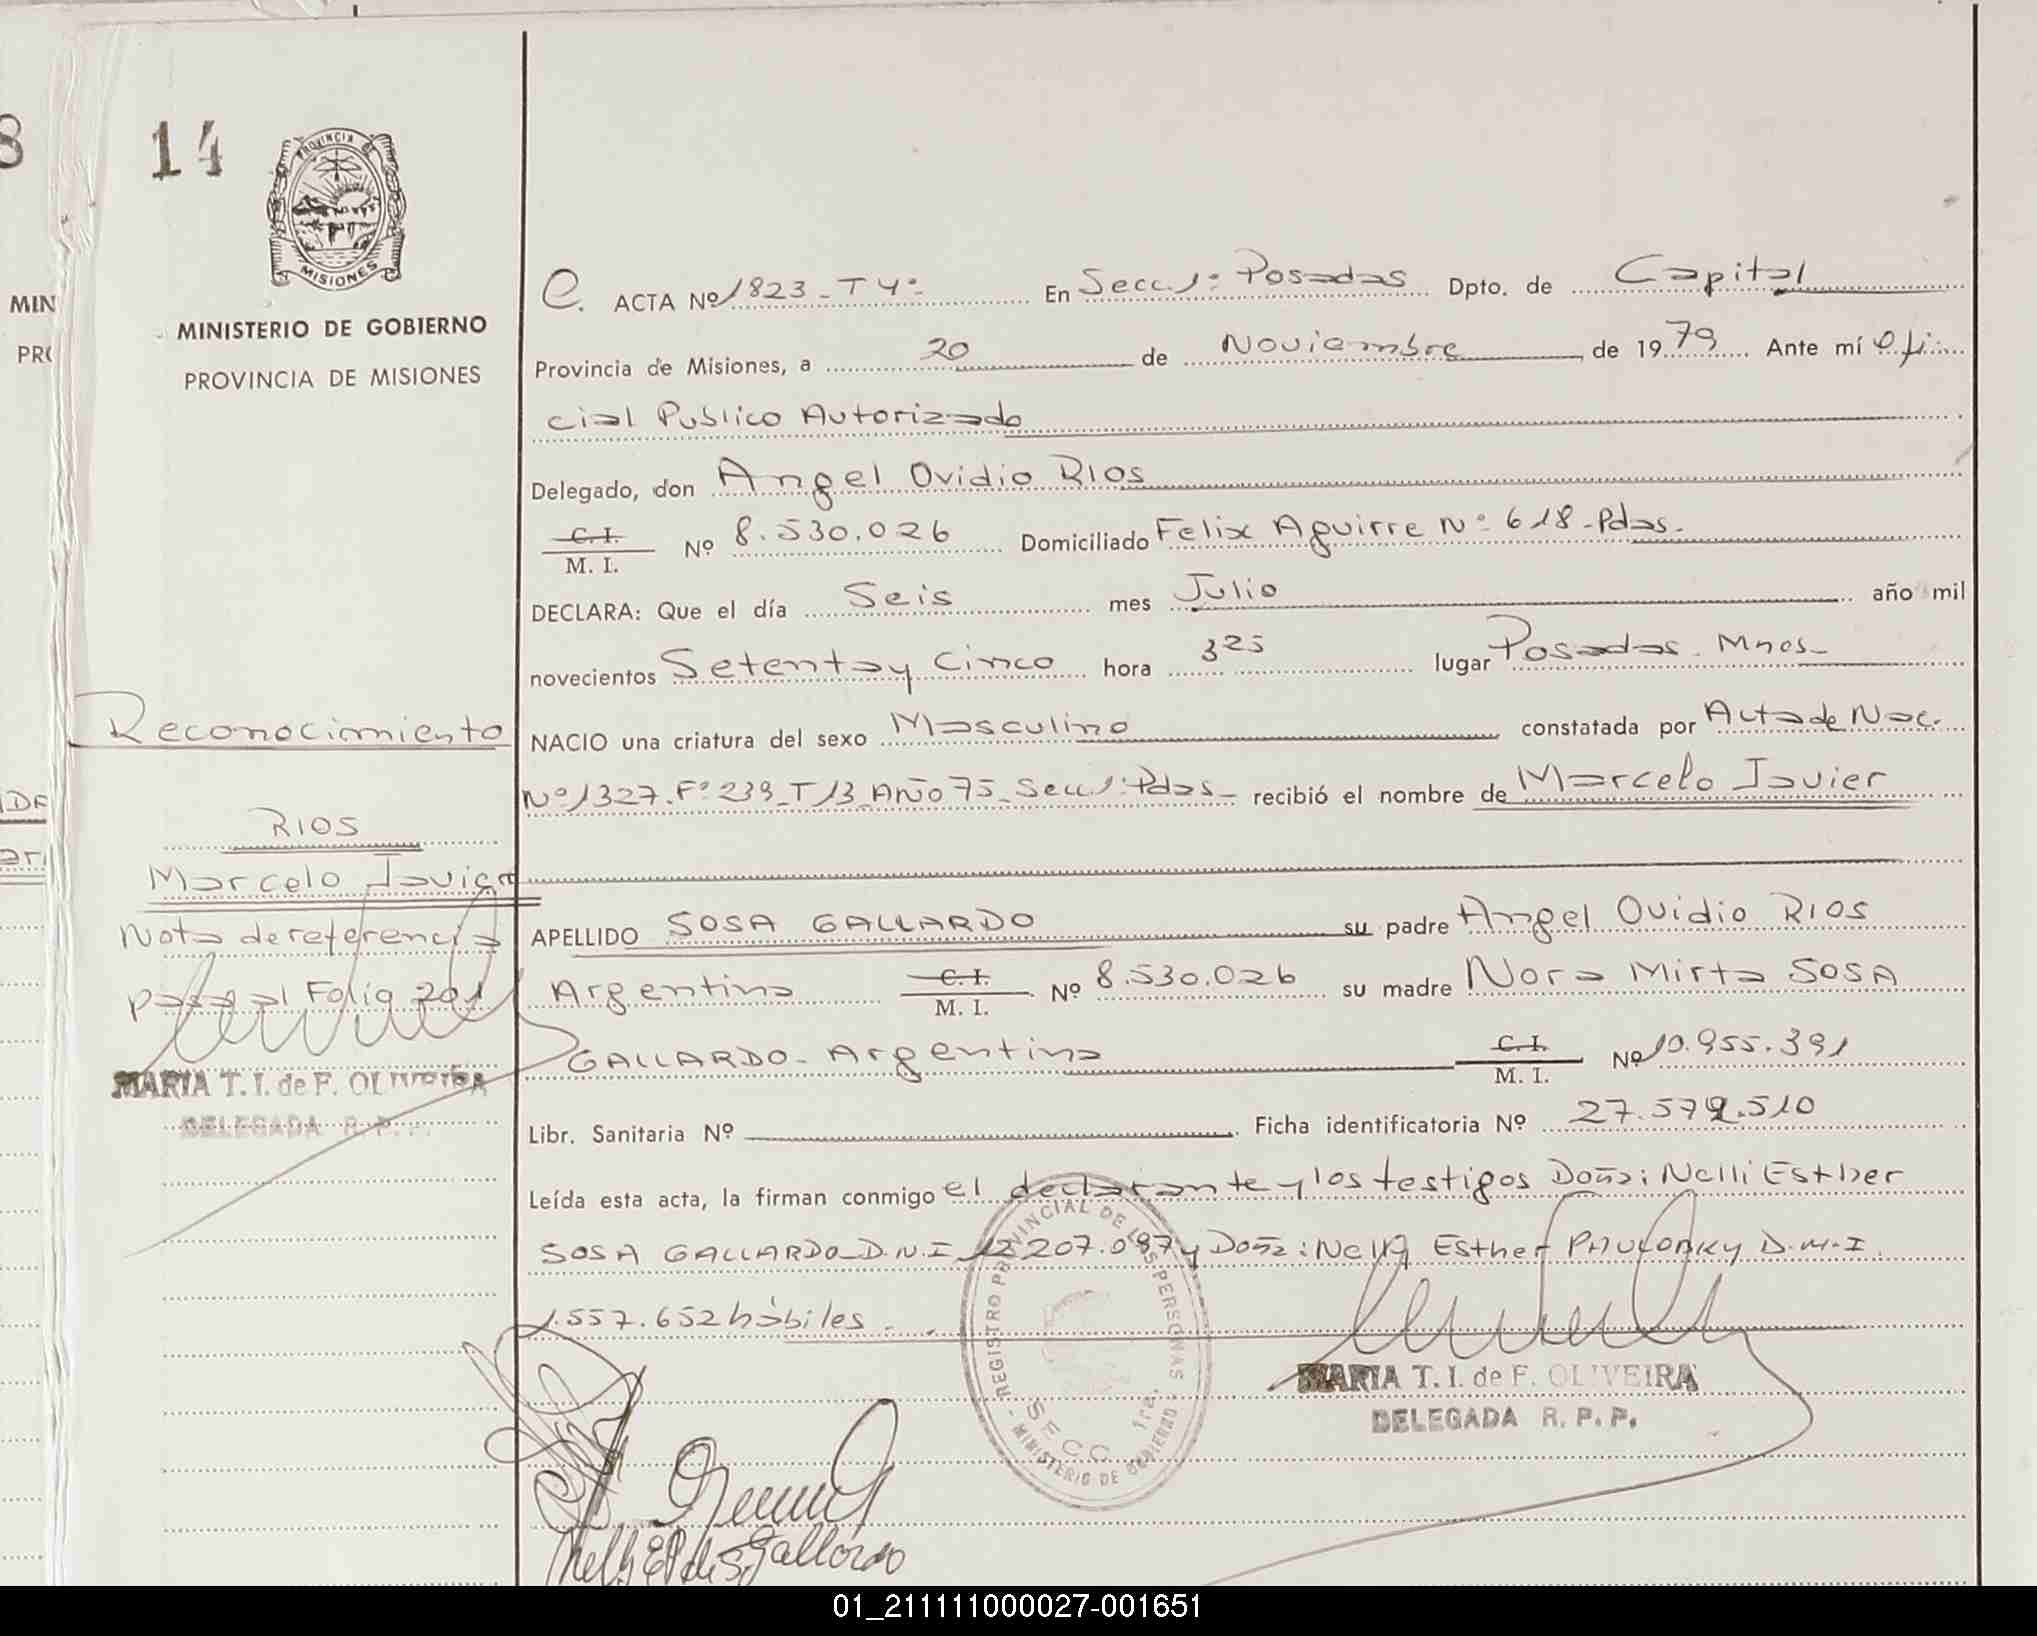 8
14
PROVINCIA DE
MISIONES
MIN
MINISTERIO DE GOBIERNO
PROVINCIA DE MISIONES
e. ACTA Nº 1823 - T 4º En Secc. 1º Posadas Dpto. de Capital
Provincia de Misiones, a 20 de Noviembre de 1979 Ante mí Ofi-
cial Publico Autorizado
Delegado, don Angel Ovidio RIOS
C. I.
M. I. Nº 8.530.026 Domiciliado Felix Aguirre Nº 618 - Pdas.
DECLARA: Que el día Seis mes Julio año mil
novecientos Setenta y Cinco hora 325 lugar Posadas - Mnes-
Reconocimiento
NACIO una criatura del sexo Masculino constatada por Acta de Nac.
Nº 1327. Fº 239 - T/13 AÑO 75 - Secc. 1º Pdas - recibió el nombre de Marcelo Javier
RIOS
Marcelo Javier
Nota de referencia
pasa al Folio 201
APELLIDO SOSA GALLARDO su padre Angel Ovidio RIOS
Argentino C. I.
M. I. Nº 8.530.026 su madre Nora Mirta SOSA
GALLARDO - Argentina C. I.
M. I. Nº 10.955.391
MARIA T. I. de F. OLIVEIRA
DELEGADA R. P. P.
Libr. Sanitaria Nº Ficha identificatoria Nº 27.572.510
Leída esta acta, la firman conmigo el declarante y los testigos Doña: Nelli Esther
SOSA GALLARDO - D.N.I 12.207.097 y Doña: Nelly Esther D.N.I
1.557.652 hábiles.
REGISTRO PROVINCIAL DE LAS PERSONAS
SECC. 1ra.
MINISTERIO DE GOBIERNO
MARIA T. I. de F. OLIVEIRA
DELEGADA R. P. P.
01_211111000027-001651